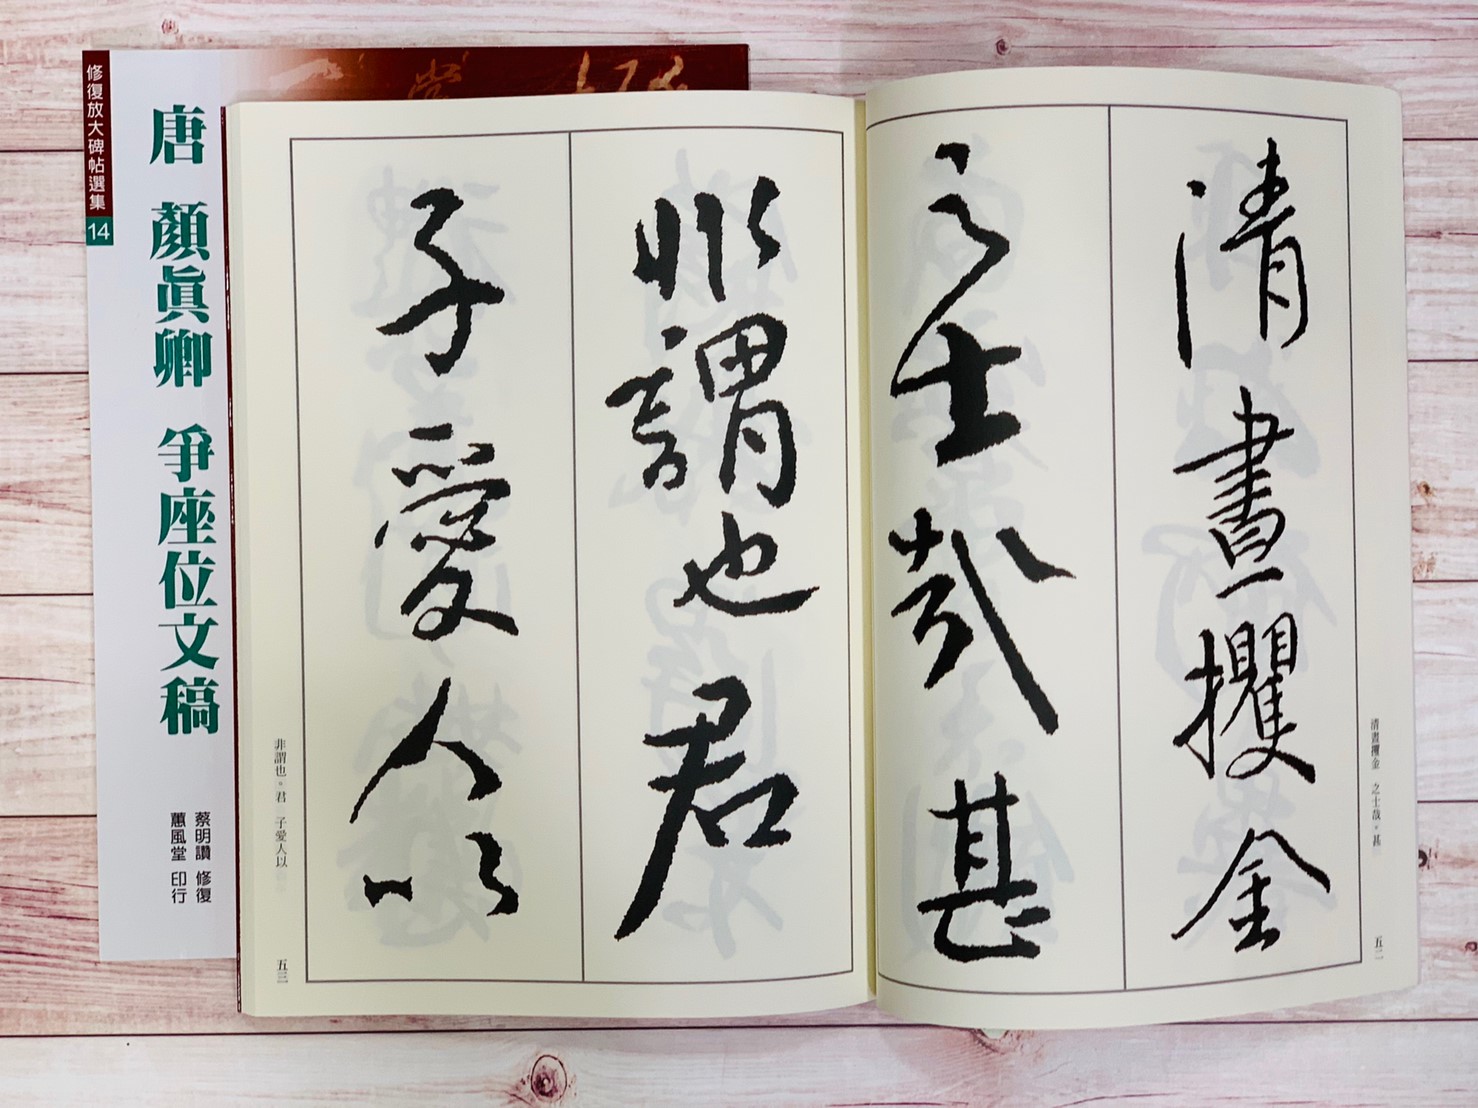 修復放大碑帖選集 14
唐 顏眞卿 爭座位文稿
蔡明讚 修復
蕙風堂 印行
清晝攫金
之士哉甚
清晝攫金 之士哉。甚
五二
非謂也君
子愛人以
非謂也。君 子愛人以
五三